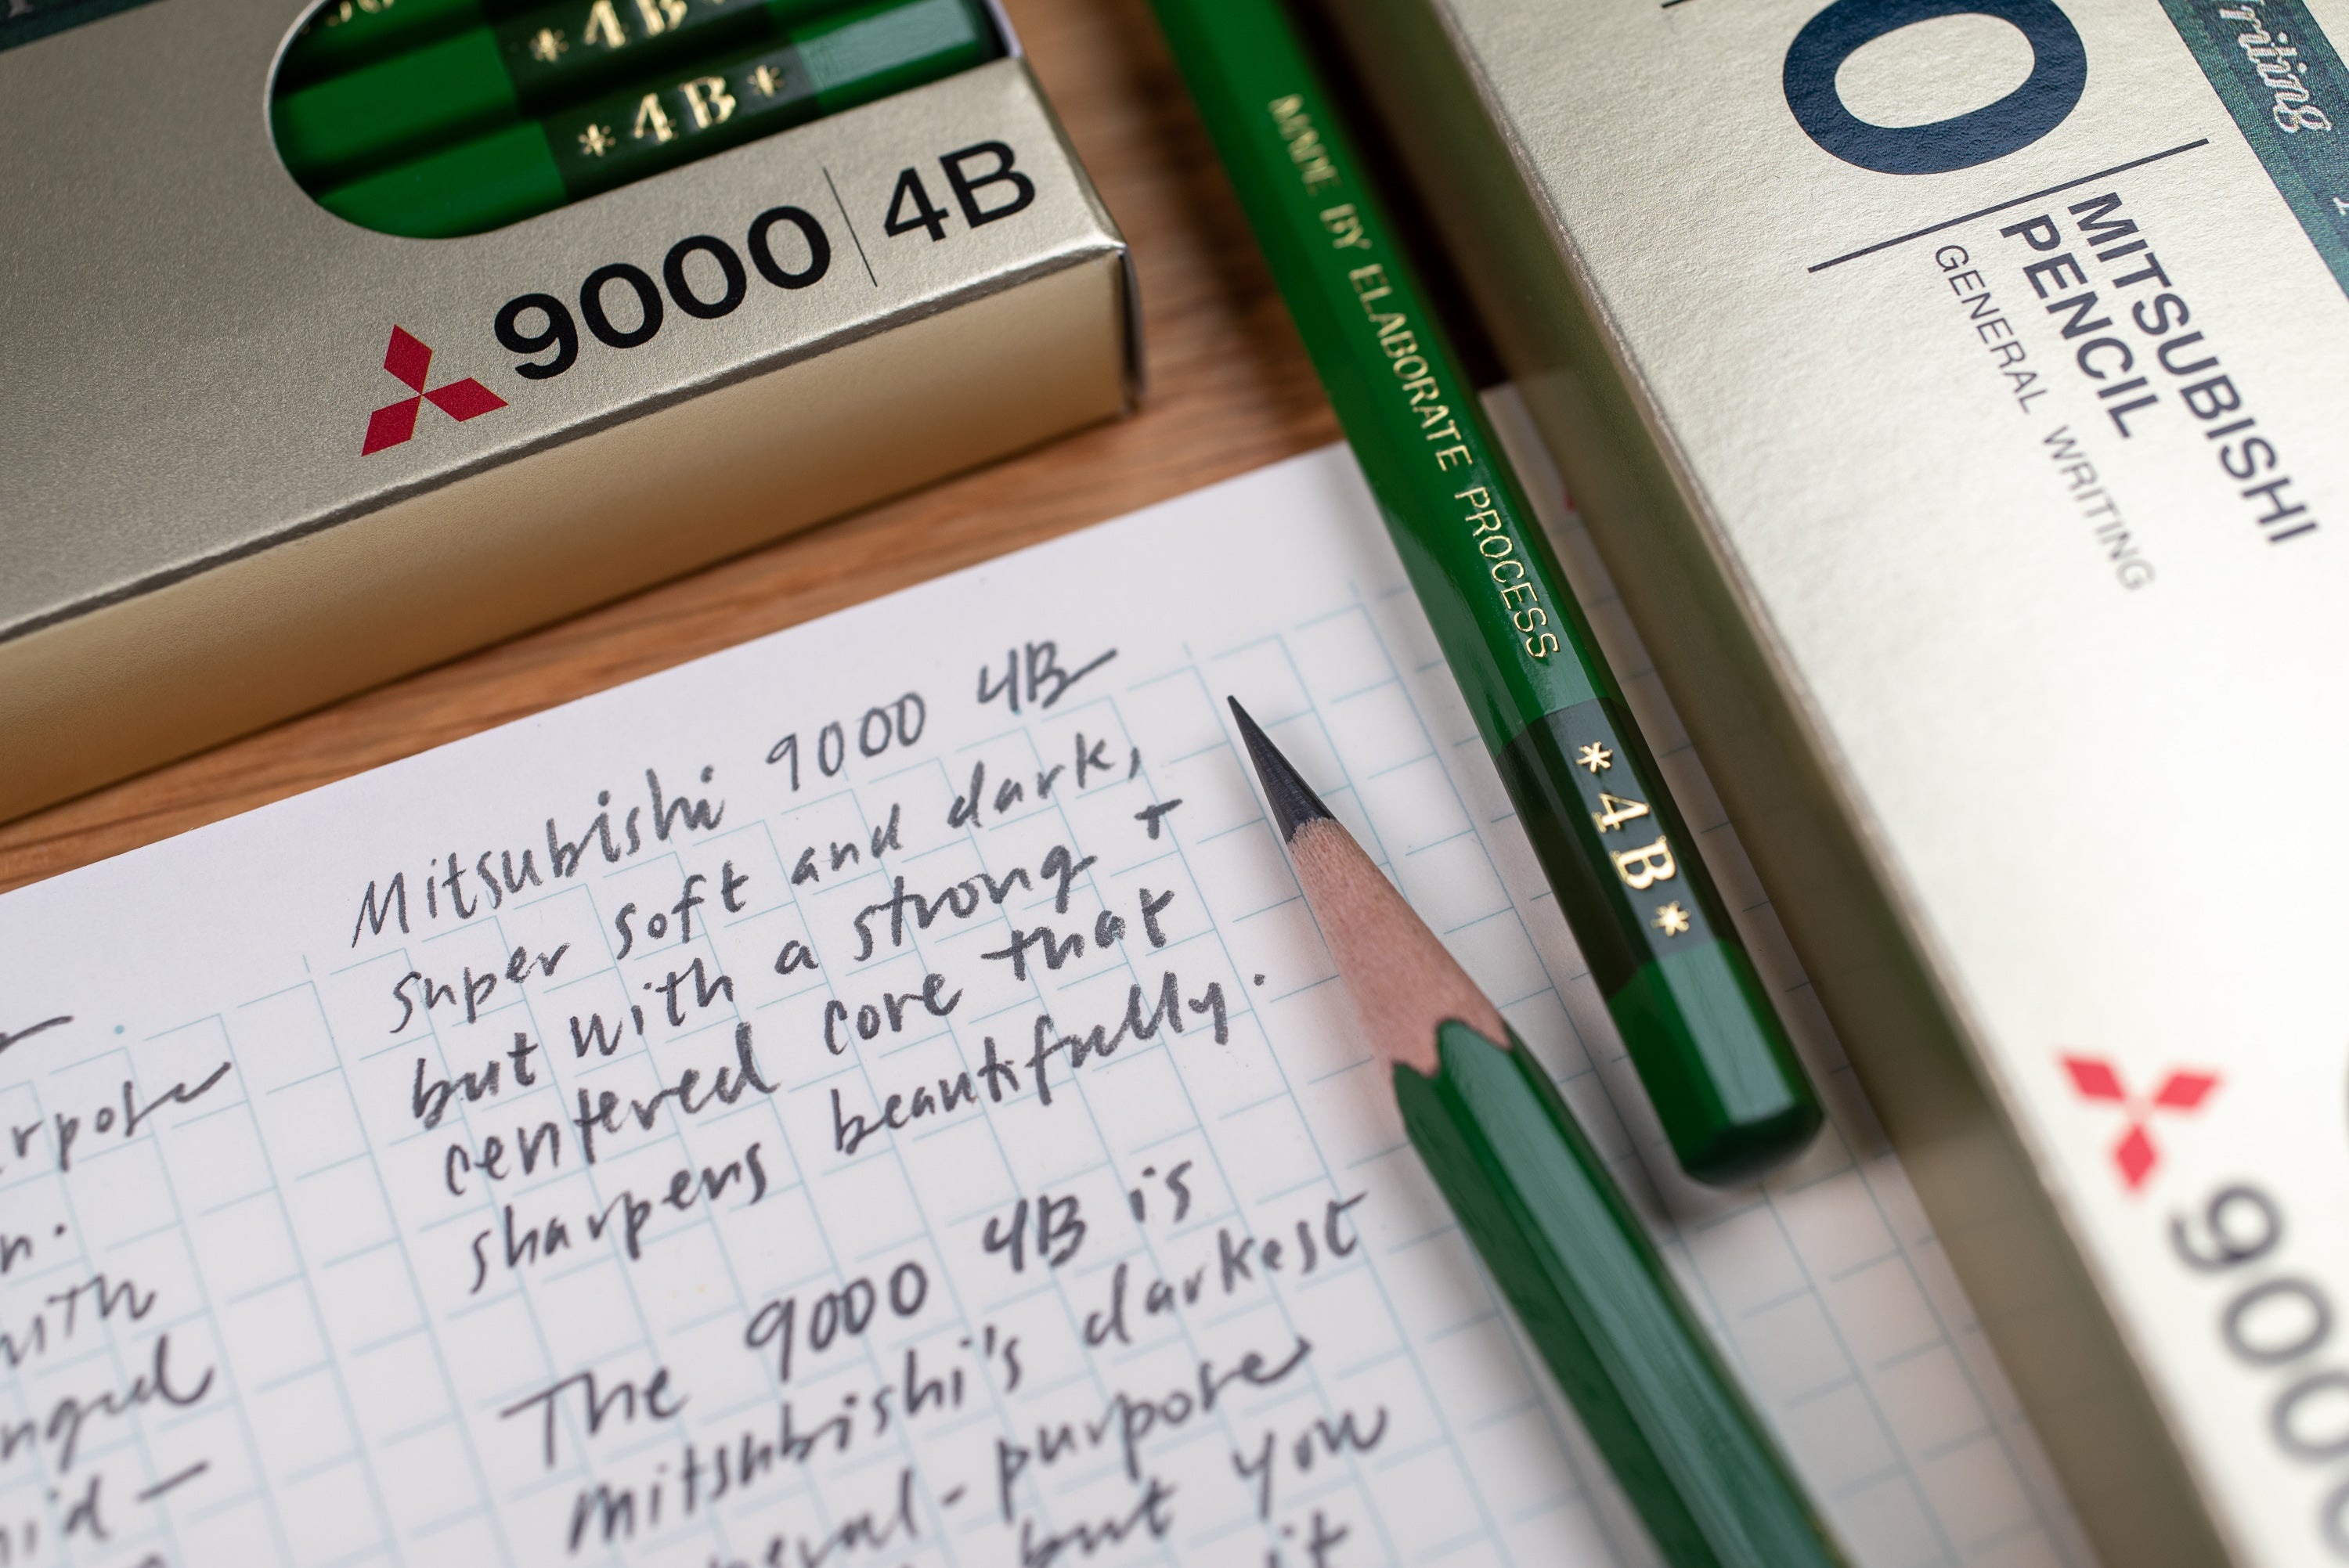 *4B*
*4B*
9000 4B
MADE BY ELABORATE PROCESS
*4B*
MITSUBISHI
PENCIL
GENERAL WRITING
Mitsubishi 9000 4B
super soft and dark,
but with a strong +
centered core that
sharpens beautifully.
The 9000 4B is
Mitsubishi's darkest
-purpose
but you
it
with